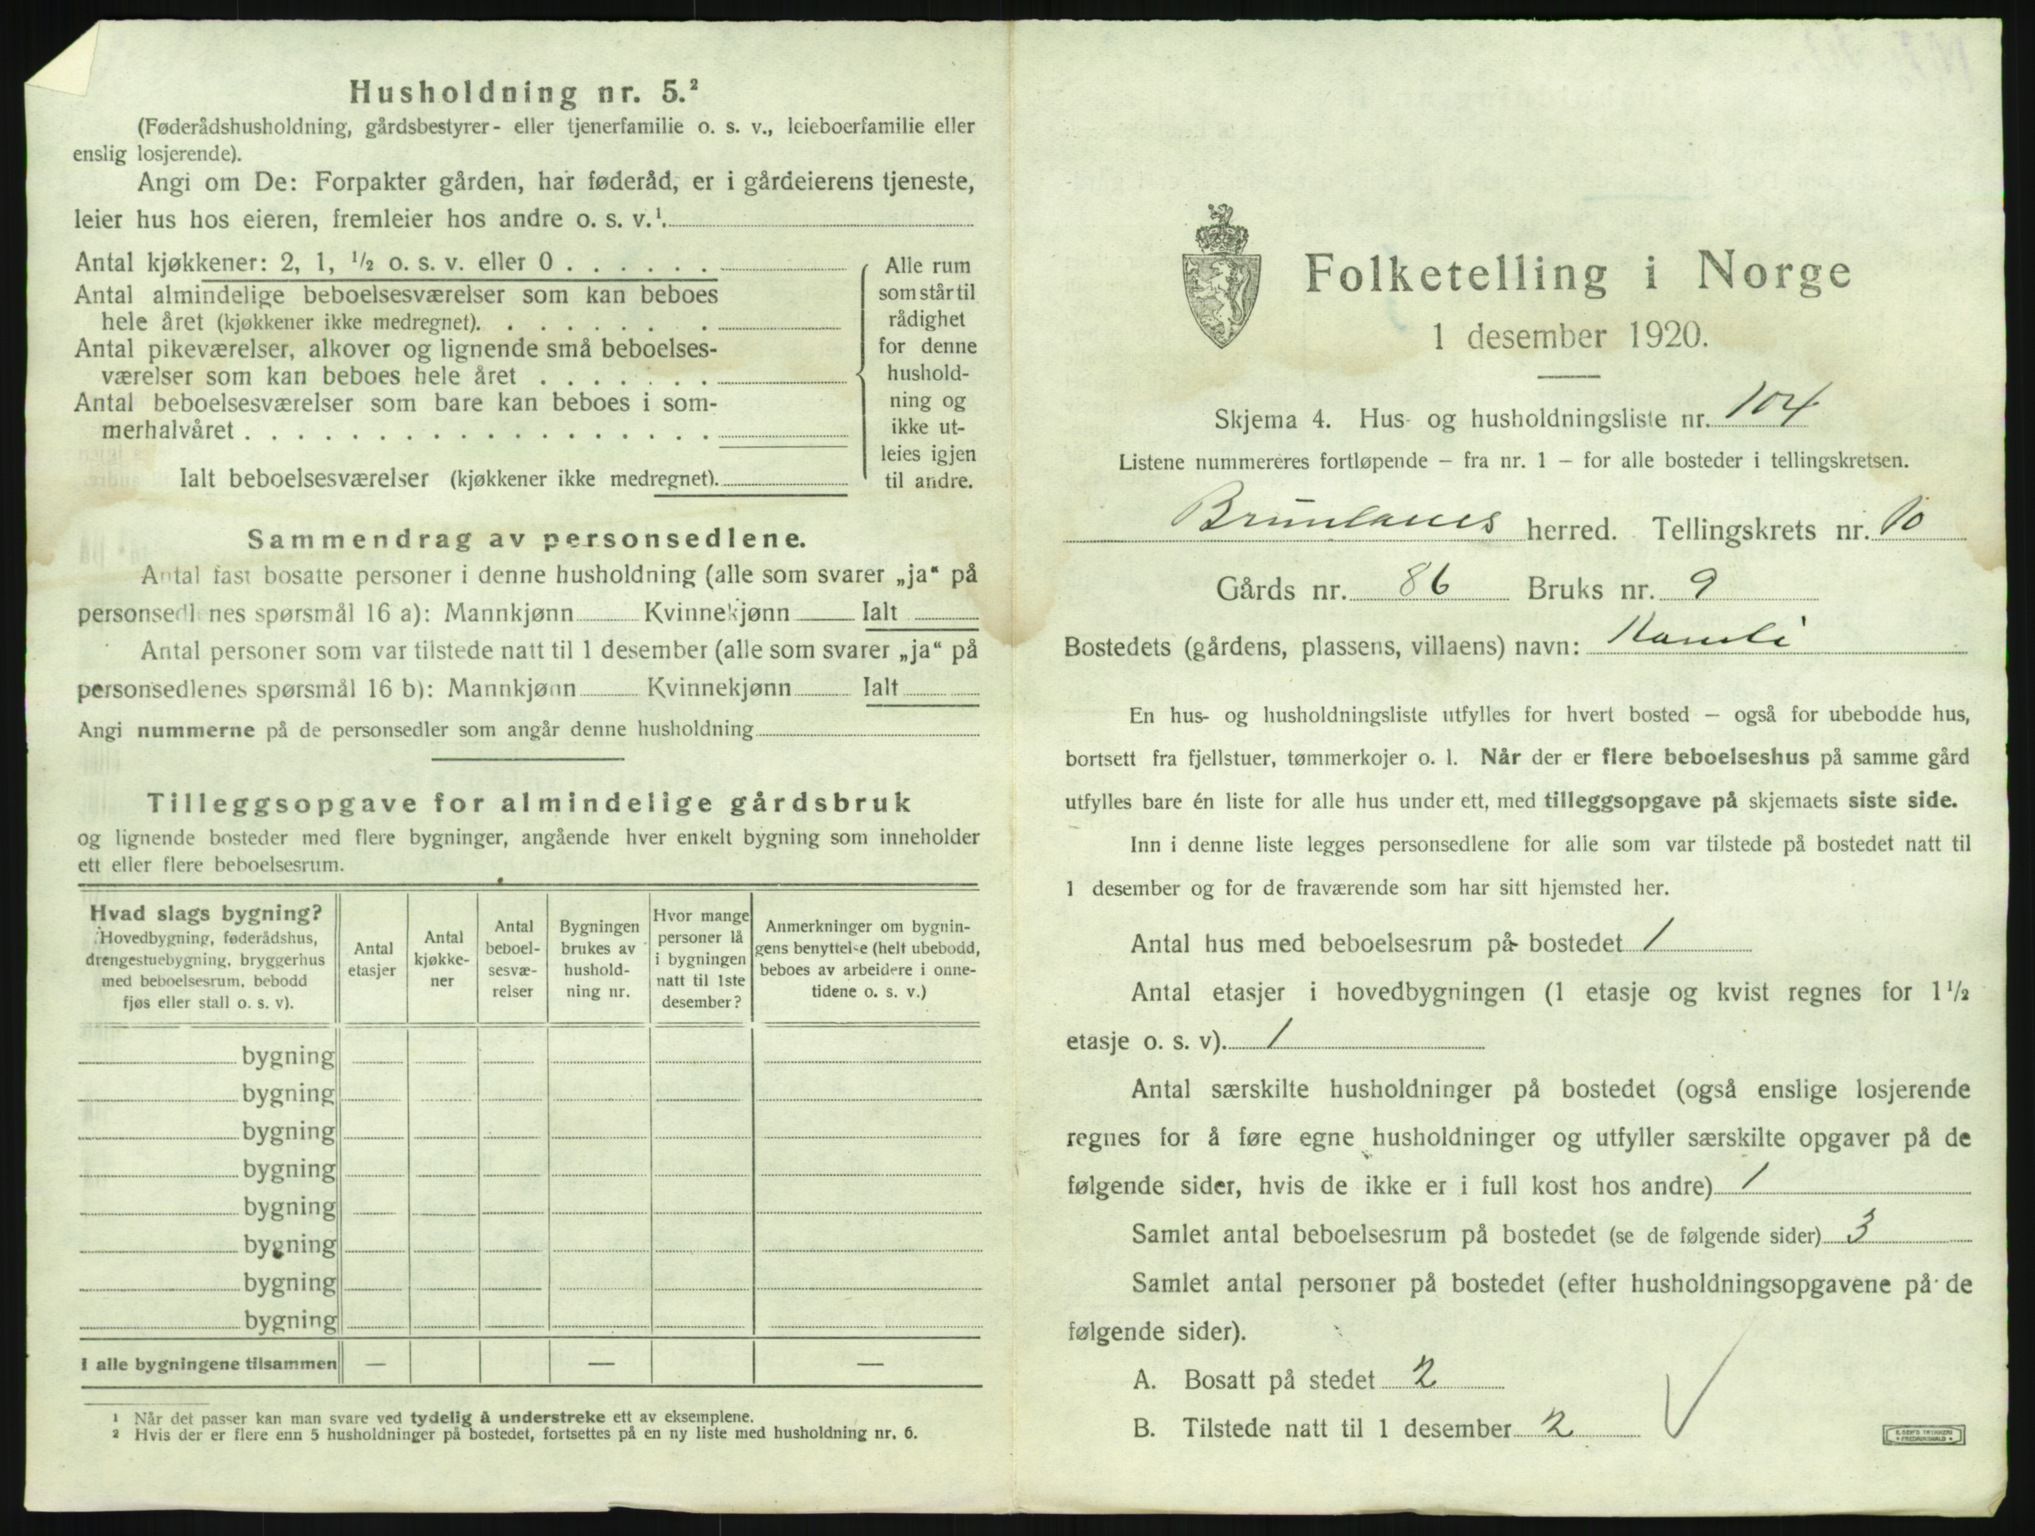 Husholdning nr. 5.²
(Føderådshusholdning, gårdsbestyrer- eller tjenerfamilie o. s. v., leieboerfamilie eller
enslig losjerende).
Angi om De: Forpakter gården, har føderåd, er i gårdeierens tjeneste,
leier hus hos eieren, fremleier hos andre o. s. v.¹
Antal kjøkkener: 2, 1, ½ o. s. v. eller 0
Antal almindelige beboelsesværelser som kan beboes
hele året (kjøkkener ikke medregnet).
Antal pikeværelser, alkover og lignende små beboelses-
værelser som kan beboes hele året
Antal beboelsesværelser som bare kan beboes i som-
merhalvåret
Ialt beboelsesværelser (kjøkkener ikke medregnet).
Alle rum
som står til
rådighet
for denne
hushold-
ning og
ikke ut-
leies igjen
til andre.
Sammendrag av personsedlene.
Antal fast bosatte personer i denne husholdning (alle som svarer „ja“ på
personsedlenes spørsmål 16 a): Mannkjønn Kvinnekjønn Ialt
Antal personer som var tilstede natt til 1 desember (alle som svarer „ja“ på
personsedlenes spørsmål 16 b): Mannkjønn Kvinnekjønn Ialt
Angi nummerne på de personsedler som angår denne husholdning
Tilleggsopgave for almindelige gårdsbruk
og lignende bosteder med flere bygninger, angående hver enkelt bygning som inneholder
ett eller flere beboelsesrum.
Hvad slags bygning?
Hovedbygning, føderådshus,
drengestuebygning, bryggerhus
med beboelsesrum, bebodd
fjøs eller stall o. s. v).
Antal
etasjer
Antal
kjøkke-
ner
Antal
beboel-
sesvæ-
relser
Bygningen
brukes av
hushold-
ning nr.
Hvor mange
personer lå
i bygningen
natt til 1ste
desember?
Anmerkninger om bygnin-
gens benyttelse (helt ubebodd,
beboes av arbeidere i onne-
tidene o. s. v.)
bygning
bygning
bygning
bygning
bygning
bygning
bygning
bygning
I alle bygningene tilsammen — — —
¹ Når det passer kan man svare ved tydelig å understreke ett av eksemplene.
² Hvis der er flere enn 5 husholdninger på bostedet, fortsettes på en ny liste med husholdning nr. 6.
Folketelling i Norge
1 desember 1920.
Skjema 4. Hus- og husholdningsliste nr. 104
Listene nummereres fortløpende – fra nr. 1 – for alle bosteder i tellingskretsen.
Brunlanes herred. Tellingskrets nr. 10
Gårds nr. 86 Bruks nr. 9
Bostedets (gårdens, plassens, villaens) navn:
En hus- og husholdningsliste utfylles for hvert bosted – også for ubebodde hus,
bortsett fra fjellstuer, tømmerkojer o. l. Når der er flere beboelseshus på samme gård
utfylles bare én liste for alle hus under ett, med tilleggsopgave på skjemaets siste side.
Inn i denne liste legges personsedlene for alle som var tilstede på bostedet natt til
1 desember og for de fraværende som har sitt hjemsted her.
Antal hus med beboelsesrum på bostedet 1
Antal etasjer i hovedbygningen (1 etasje og kvist regnes for 1½
etasje o. s. v). 1
Antal særskilte husholdninger på bostedet (også enslige losjerende
regnes for å føre egne husholdninger og utfyller særskilte opgaver på de
følgende sider, hvis de ikke er i full kost hos andre) 1
Samlet antal beboelsesrum på bostedet (se de følgende sider) 3
Samlet antal personer på bostedet (efter husholdningsopgavene på de
følgende sider).
A. Bosatt på stedet 2
B. Tilstede natt til 1 desember 2